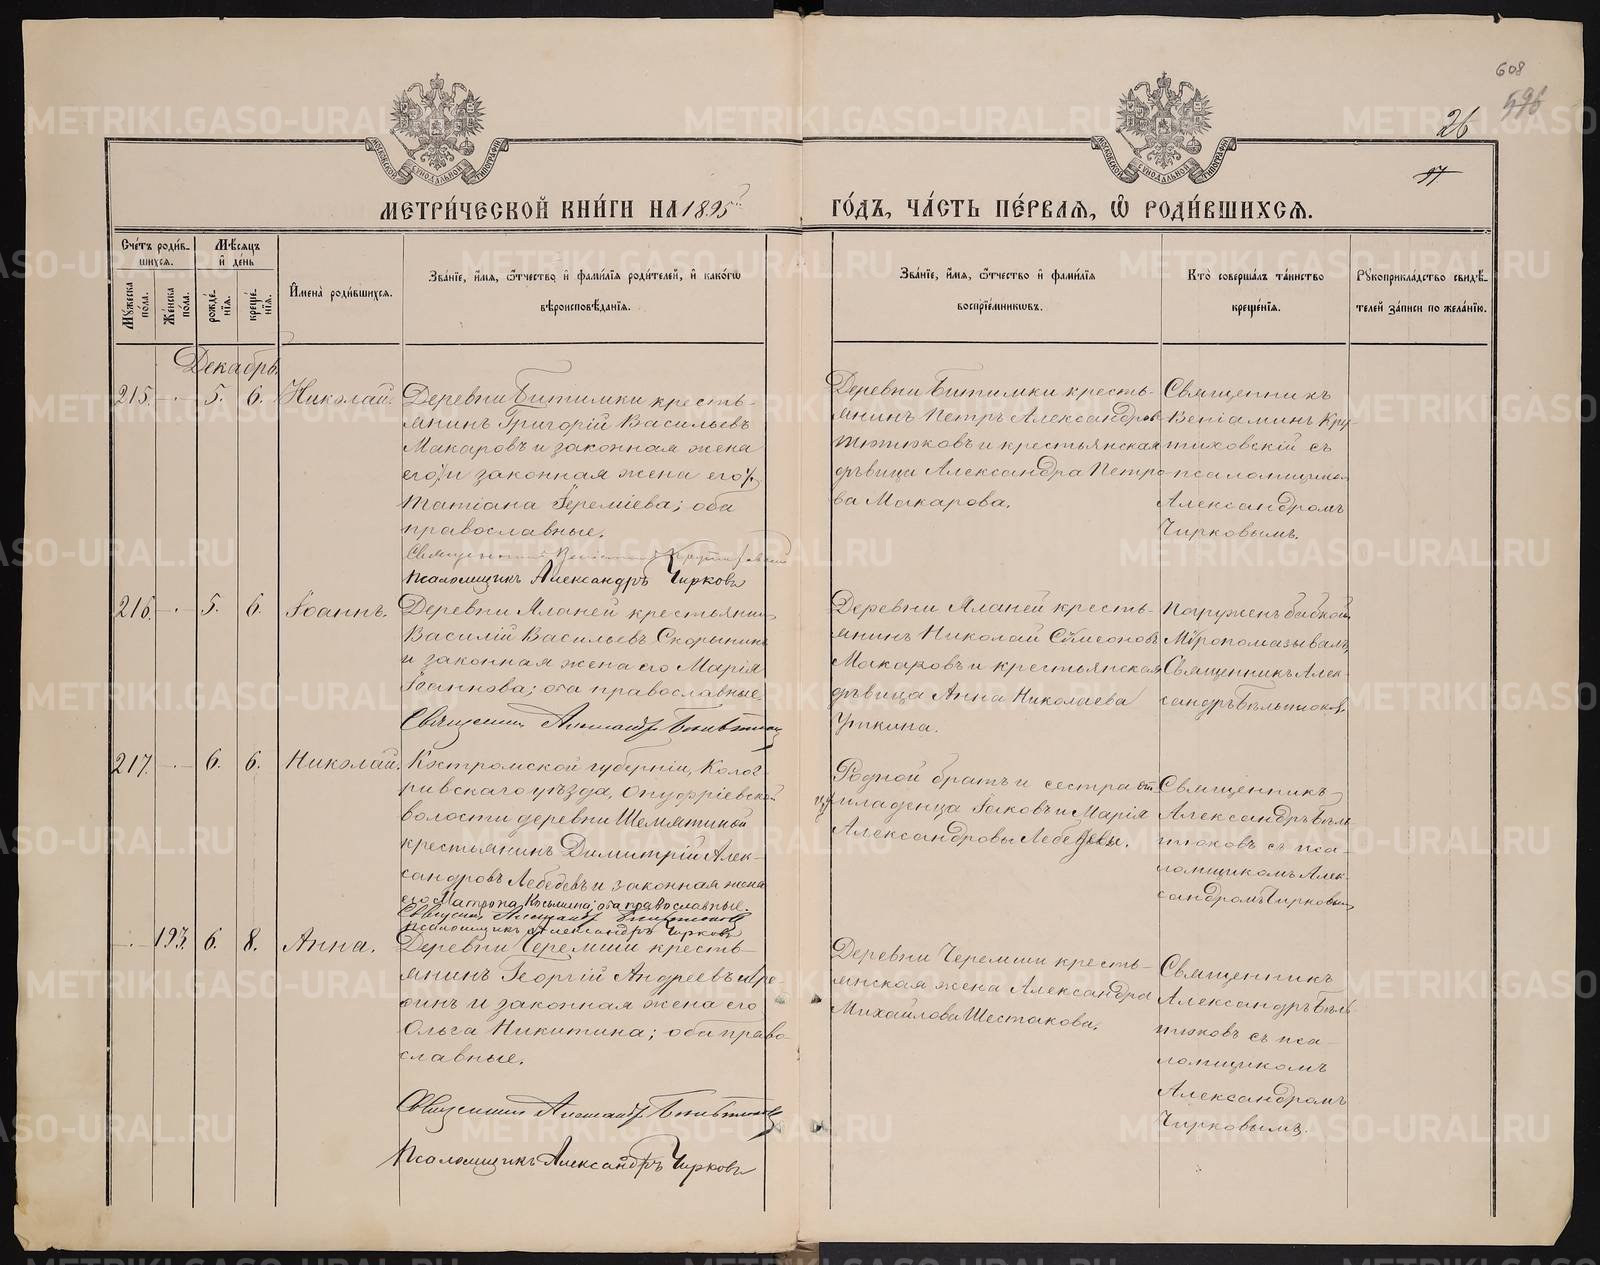 608
596
26
97
МОСКОВСКОЙ СѴНОДАЛЬНОЙ ТИПОГРАФІИ
МОСКОВСКОЙ СѴНОДАЛЬНОЙ ТИПОГРАФІИ
МЕТРИ́ЧЕСКОЙ КНИ́ГИ НА 1895й ГО́ДЪ, ЧА́СТЬ ПЕ́РВАЯ, Ѿ РОДИ́ВШИХСЯ.
Сче́тъ роди́в-
шихся.
Мꙋ́жеска по́ла.
Же́нска по́ла.
Мѣ́сяцъ
и҆ де́нь
рожде́-
нїя.
креще́-
нїя.
И҆мена̀ роди́вшихся.
Зва́нїе, и҆́мя, ѻ҆́тчество и҆ фами́лїя роди́телей, и҆ како́гѡ
вѣроисповѣ́данїя.
Зва́нїе, и҆́мя, ѻ҆́тчество и҆ фами́лїя
воспрїе́мникѡвъ.
Кто̀ соверша́лъ та́инство
креще́нїя.
Рꙋкоприкла́дство свидѣ́-
телей за́писи по жела́нїю.
Декабрь
215. - 5. 6. Николай.
Деревни Битимки кресть-
янинъ Григорій Васильевъ
Макаровъ и законная жена
его /и законная жена его/
Татіана Іереміева; оба
православные.
Священникъ Веніаминъ Крутиховскій
Псаломщикъ Александръ Чирковъ
Деревни Битимки кресть-
янинъ Петръ Александров
и крестьянская
дѣвица Александра Петро-
ва Макарова.
Священникъ
Веніаминъ Кру-
тиховскій съ
псаломщиком
Александромъ
Чирковымъ.
216. - 5. 6. Іоаннъ.
Деревни Яланей крестьянинъ
Василій Васильевъ Скорынинъ
и законная жена его Марія
Іоаннова; оба православные.
Священникъ Александръ Бѣльтюковъ
Деревни Яланей кресть-
янинъ Николай Сѵмеоновъ
Макаровъ и крестьянская
дѣвица Анна Николаева
Уткина.
Погруженъ бабкой,
Мѵропомазывалъ
Священникъ Алек-
сандръ Бѣльтюковъ.
217. - 6. 6. Николай.
Костромской губерніи, Колог-
ривскаго уѣзда, Онуфріевской
волости деревни Шемятиной
крестьянинъ Димитрій Алек-
сандровъ Лебедевъ и законная жена
его Матрона Косьмина; оба православные.
Священникъ Александръ Бѣльтюковъ
Псаломщикъ Александръ Чирковъ
Родной братъ и сестра отца
младенца Іаковъ и Марія
Александровы Лебедевы.
Священникъ
Александръ Бѣль-
тюковъ съ пса-
ломщикомъ Алек-
сандромъ Чирковым
- 193. 6. 8. Анна.
Деревни Черемши кресть-
янинъ Георгій Андреевъ
и законная жена его
Ольга Никитина; оба право-
славные.
Священникъ Александръ Бѣльтюковъ
Псаломщикъ Александръ Чирковъ
Деревни Черемши кресть-
янская жена Александра
Михайлова Шестакова.
Священникъ
Александръ Бѣль-
тюковъ съ пса-
ломщикомъ
Александромъ
Чирковымъ.
METRIKI.GASO-URAL.RU